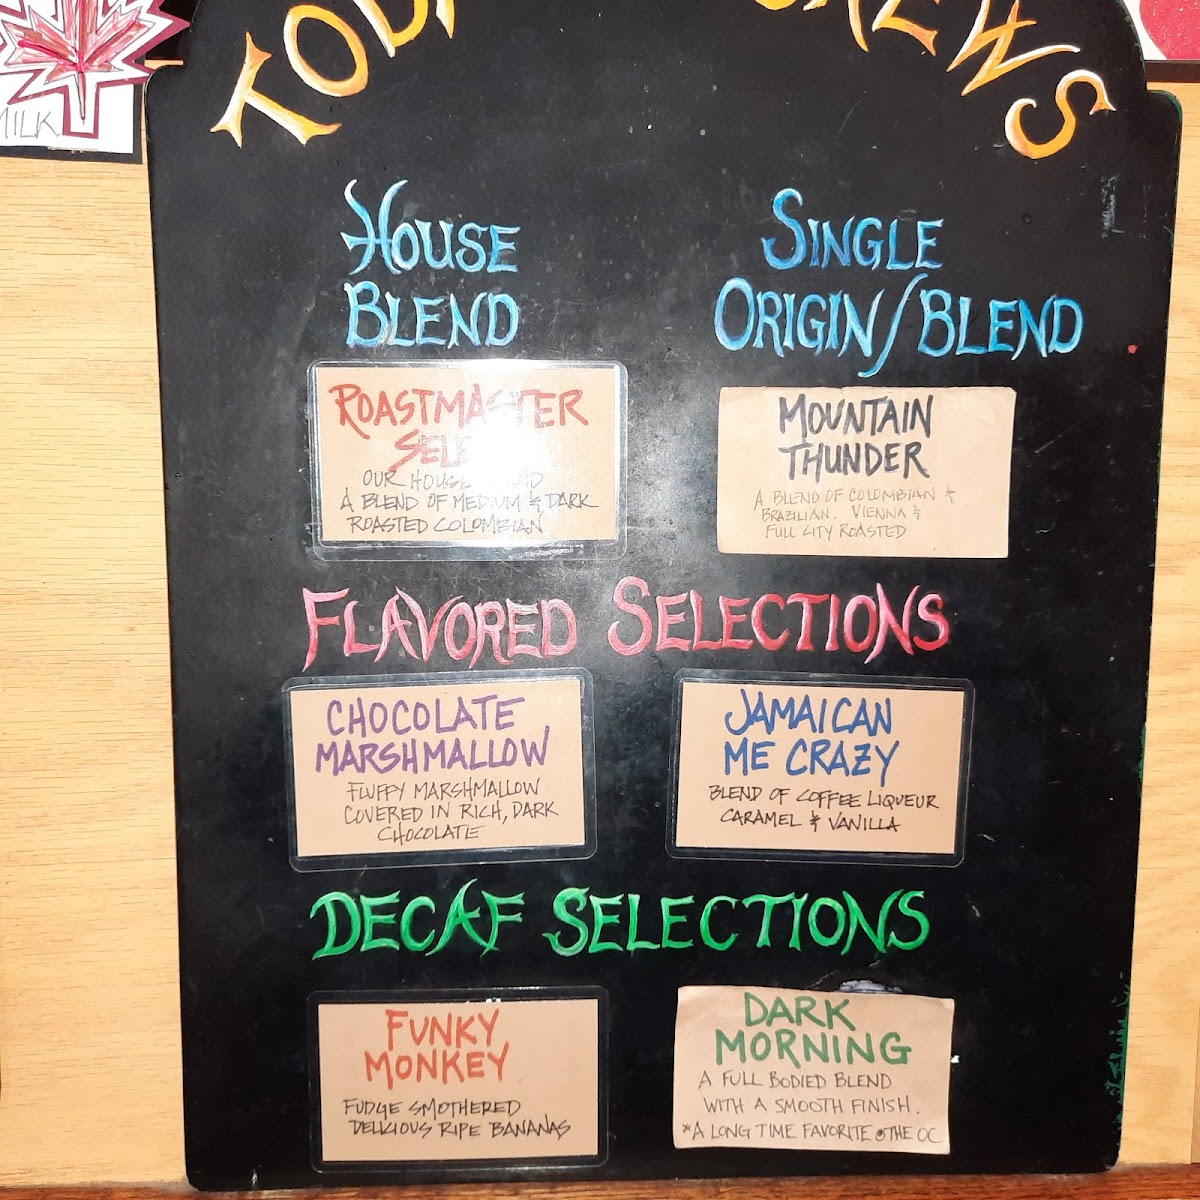 MILK
HOUSE
BLEND
SINGLE
ORIGIN/BLEND
ROASTMASTER
OUR HOUSE
A BLEND OF MEDIUM & DARK
ROASTED COLOMBIAN
MOUNTAIN
THUNDER
A BLEND OF COLOMBIAN &
BRAZILIAN. VIENNA &
FULL CITY ROASTED
FLAVORED SELECTIONS
CHOCOLATE
MARSHMALLOW
FLUFFY MARSHMALLOW
COVERED IN RICH, DARK
CHOCOLATE
JAMAICAN
ME CRAZY
BLEND OF COFFEE LIQUEUR
CARAMEL & VANILLA
DECAF SELECTIONS
FUNKY
MONKEY
FUDGE SMOTHERED
DELICIOUS RIPE BANANAS
DARK
MORNING
A FULL BODIED BLEND
WITH A SMOOTH FINISH.
*A LONG TIME FAVORITE @ THE OC